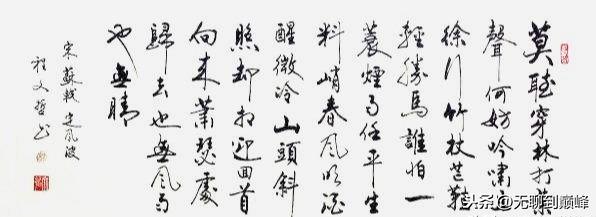 莫聽穿林打葉
聲何妨吟嘯
徐行竹杖芒鞋
輕勝馬誰怕一
蓑煙雨任平生
料峭春風吹酒
醒微冷山頭斜
照却相迎回首
向來蕭瑟處
歸去也無風雨
也無晴
宋蘇軾定風波
程文哲书
头条@无聊到巅峰